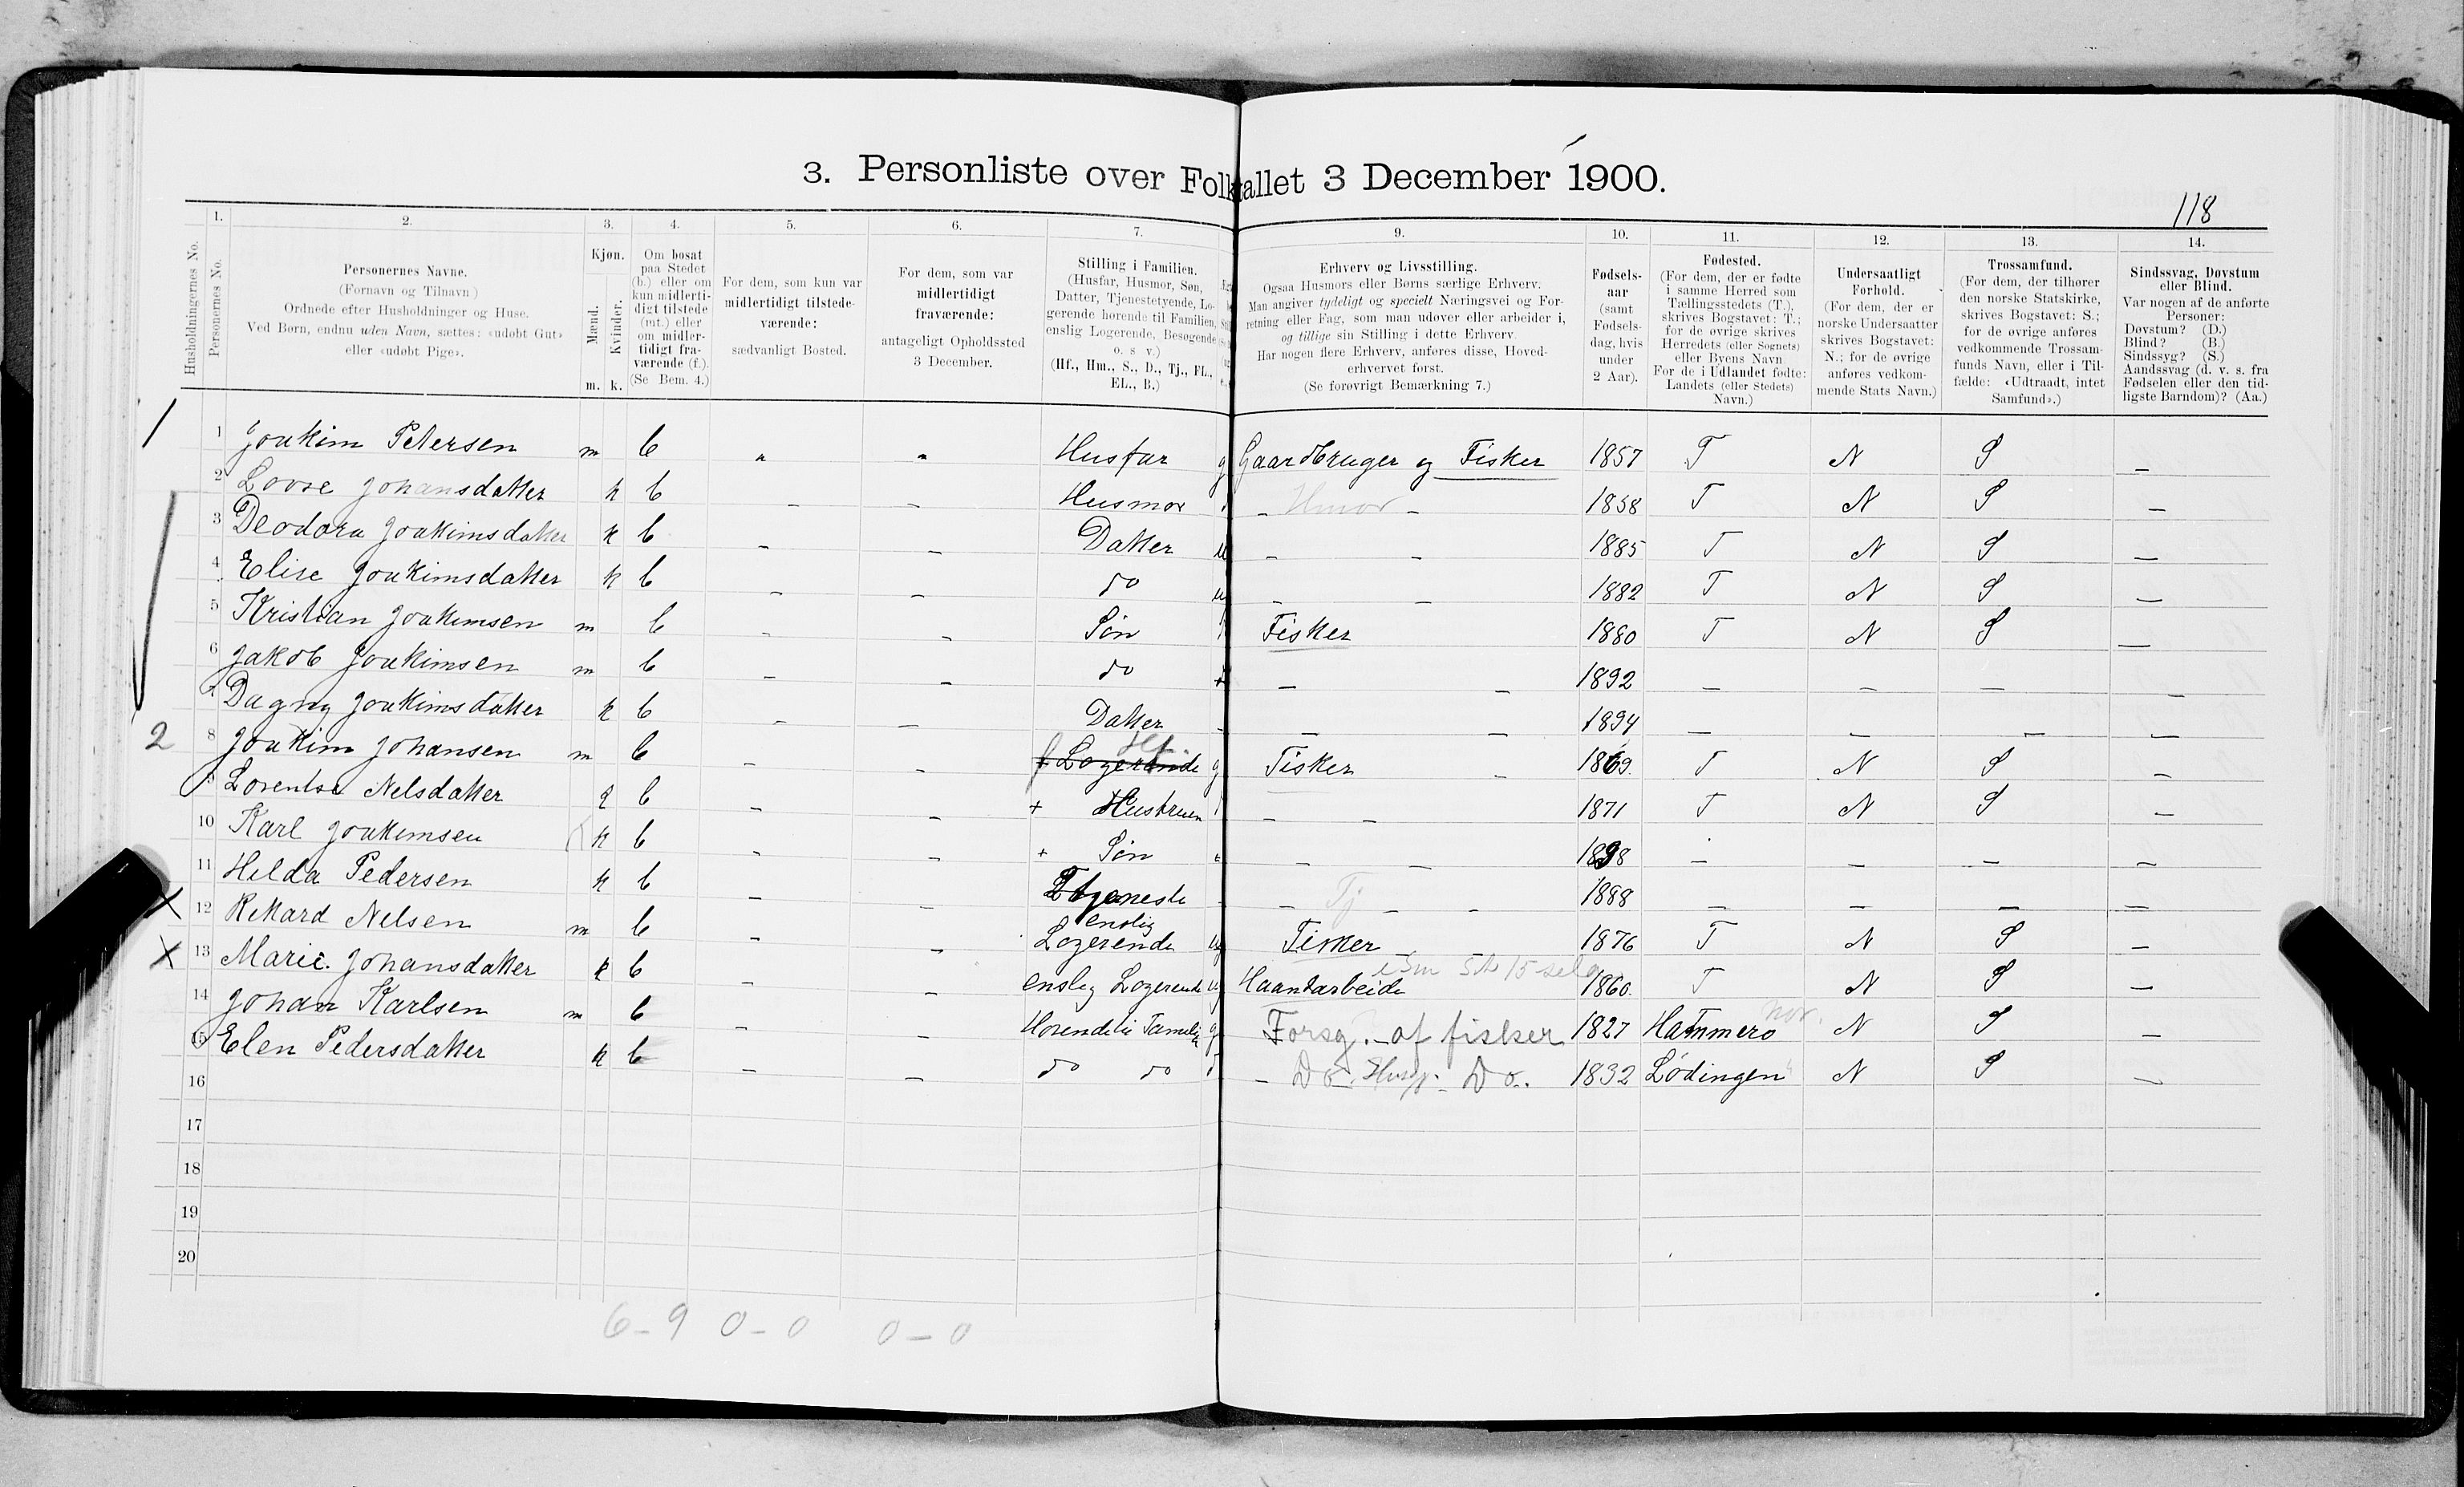 3. Personliste over Folketallet 3 December 1900.
118
1. 2. 3. 4. 5. 6. 7. 9. 10. 11. 12. 13. 14.
Husholdningernes No.
Personernes No.
Personernes Navne.
(Fornavn og Tilnavn)
Ordnede efter Husholdninger og Huse.
Ved Børn, endnu uden Navn, sættes: «udøbt Gut»
eller «udøbt Pige».
Kjøn.
Mænd.
Kvinder.
m. k.
Om bosat
paa Stedet
(b.) eller om
kun midlerti-
digt tilstede
(mt.) eller
om midler-
tidigt fra-
værende (f.).
(Se Bem. 4.)
For dem, som kun var
midlertidigt tilstede-
værende:
sædvanligt Bosted.
For dem, som var
midlertidigt
fraværende:
antageligt Opholdssted
3 December.
Stilling i Familien.
(Husfar, Husmor, Søn,
Datter, Tjenestetyende, Lo-
gerende hørende til Familien,
enslig Logerende, Besøgende
o. s v.)
(Hf., Hm., S., D., Tj., FL.,
EL., B.)
Erhverv og Livsstilling.
Ogsaa Husmors eller Børns særlige Erhverv.
Man angiver tydeligt og specielt Næringsvei og For-
retning eller Fag, som man udøver eller arbeider i,
og tillige sin Stilling i dette Erhverv.
Har nogen flere Erhverv, anføres disse, Hoved-
erhvervet først.
(Se forøvrigt Bemærkning 7.)
Fødsels-
aar
(samt
Fødsels-
dag, hvis
under
2 Aar).
Fødested.
(For dem, der er fødte
i samme Herred som
Tællingsstedets (T.),
skrives Bogstavet: T.;
for de øvrige skrives
Herredets (eller Sognets)
eller Byens Navn.
For de i Udlandet fødte:
Landets (eller Stedets)
Navn.)
Undersaatligt
Forhold.
(For dem, der er
norske Undersaatter
skrives Bogstavet:
N.; for de øvrige
anføres vedkom-
mende Stats Navn.)
Trossamfund.
(For dem, der tilhører
den norske Statskirke,
skrives Bogstavet: S.;
for de øvrige anføres
vedkommende Trossam-
funds Navn, eller i Til-
fælde: «Udtraadt, intet
Samfund».)
Sindssvag, Døvstum
eller Blind.
Var nogen af de anførte
Personer:
Døvstum? (D.)
Blind? (B.)
Sindssyg? (S.)
Aandssvag (d. v. s. fra
Fødselen eller den tid-
ligste Barndom)? (Aa.)
1 1 Joakim Petersen m b " " Husfar g Gaardbruger og Fisker 1857 T N S –
2 Lovse Johansdatter k b – – Husmor – Hmor – 1858 T N S –
3 Deodora Joakimsdatter k b – – Datter u – – 1885 T N S –
4 Elise Joakimsdatter k b – – do u – – 1882 T N S –
5 Kristian Joakimsen m b – – Søn Fisker 1880 T N S –
6 Jakob Joakimsen m b – – do – – 1892 – – – –
7 Dagny Joakimsdatter k b – – Datter – – – 1894 – – – –
2 8 Joakim Johansen m b – – f Logerende Hf g Fisker – 1869. T N S –
9 Lorentse Nelsdatter k b – – + Hustruen – – 1871 T N S –
10 Karl Joakimsen k b – – + Søn – – 1898 – – – –
11 Helda Pedersen k b – – Tjeneste – Tj – – 1888 – – – –
X 12 Rikard Nelsen m b – – enslig Logerende ug Fisker 1876 T N S –
X 13 Marie. Johansdatter k b – – enslig Logerende ug Haandarbeide 1860. T N S –
14 Johan Karlsen m b – – Hørende til Familien g Forsg. af fisker 1827 Hammerø Nor. N S –
15 Elen Pedersdatter k b – – do do – Do. Husg. Do. 1832 Lødingen N S –
16
17
18
19
20
6–9 0–0 0–0